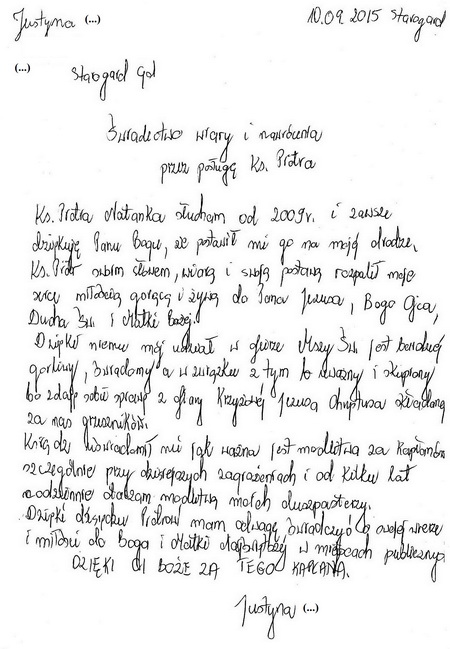 Justyna (...)
10.09.2015 Starogard
(...)
Starogard Gd
Świadectwo wiary i nawrócenia
przez posługę Ks. Piotra
Ks. Piotra Natanka słucham od 2009r. i zawsze
dziękuję Panu Bogu, że postawił mi go na mojej drodze.
Ks. Piotr swoim słowem, wiarą i swoją postawą rozpalił moje
serce miłością gorącą i żywą do Pana Jezusa, Boga Ojca,
Ducha Św. i Matki Bożej.
Dzięki niemu mój udział w ofierze Mszy Św. jest bardziej
gorliwy, świadomy a w związku z tym to uważny i skupiony
bo zdaję sobie sprawę z ofiary Krzyżowej Jezusa Chrystusa składaną
za nas grzeszników.
Ksiądz uświadomił mi jak ważna jest modlitwa za kapłanów
szczególnie przy dzisiejszych zagrożeniach i od kilku lat
codziennie otaczam modlitwą moich duszpasterzy.
Dzięki księdzu Piotrowi mam odwagę świadczyć o swojej wierze
i miłości do Boga i Matki Najświętszej w miejscach publicznych
DZIĘKI CI BOŻE ZA TEGO KAPŁANA.
Justyna (...)